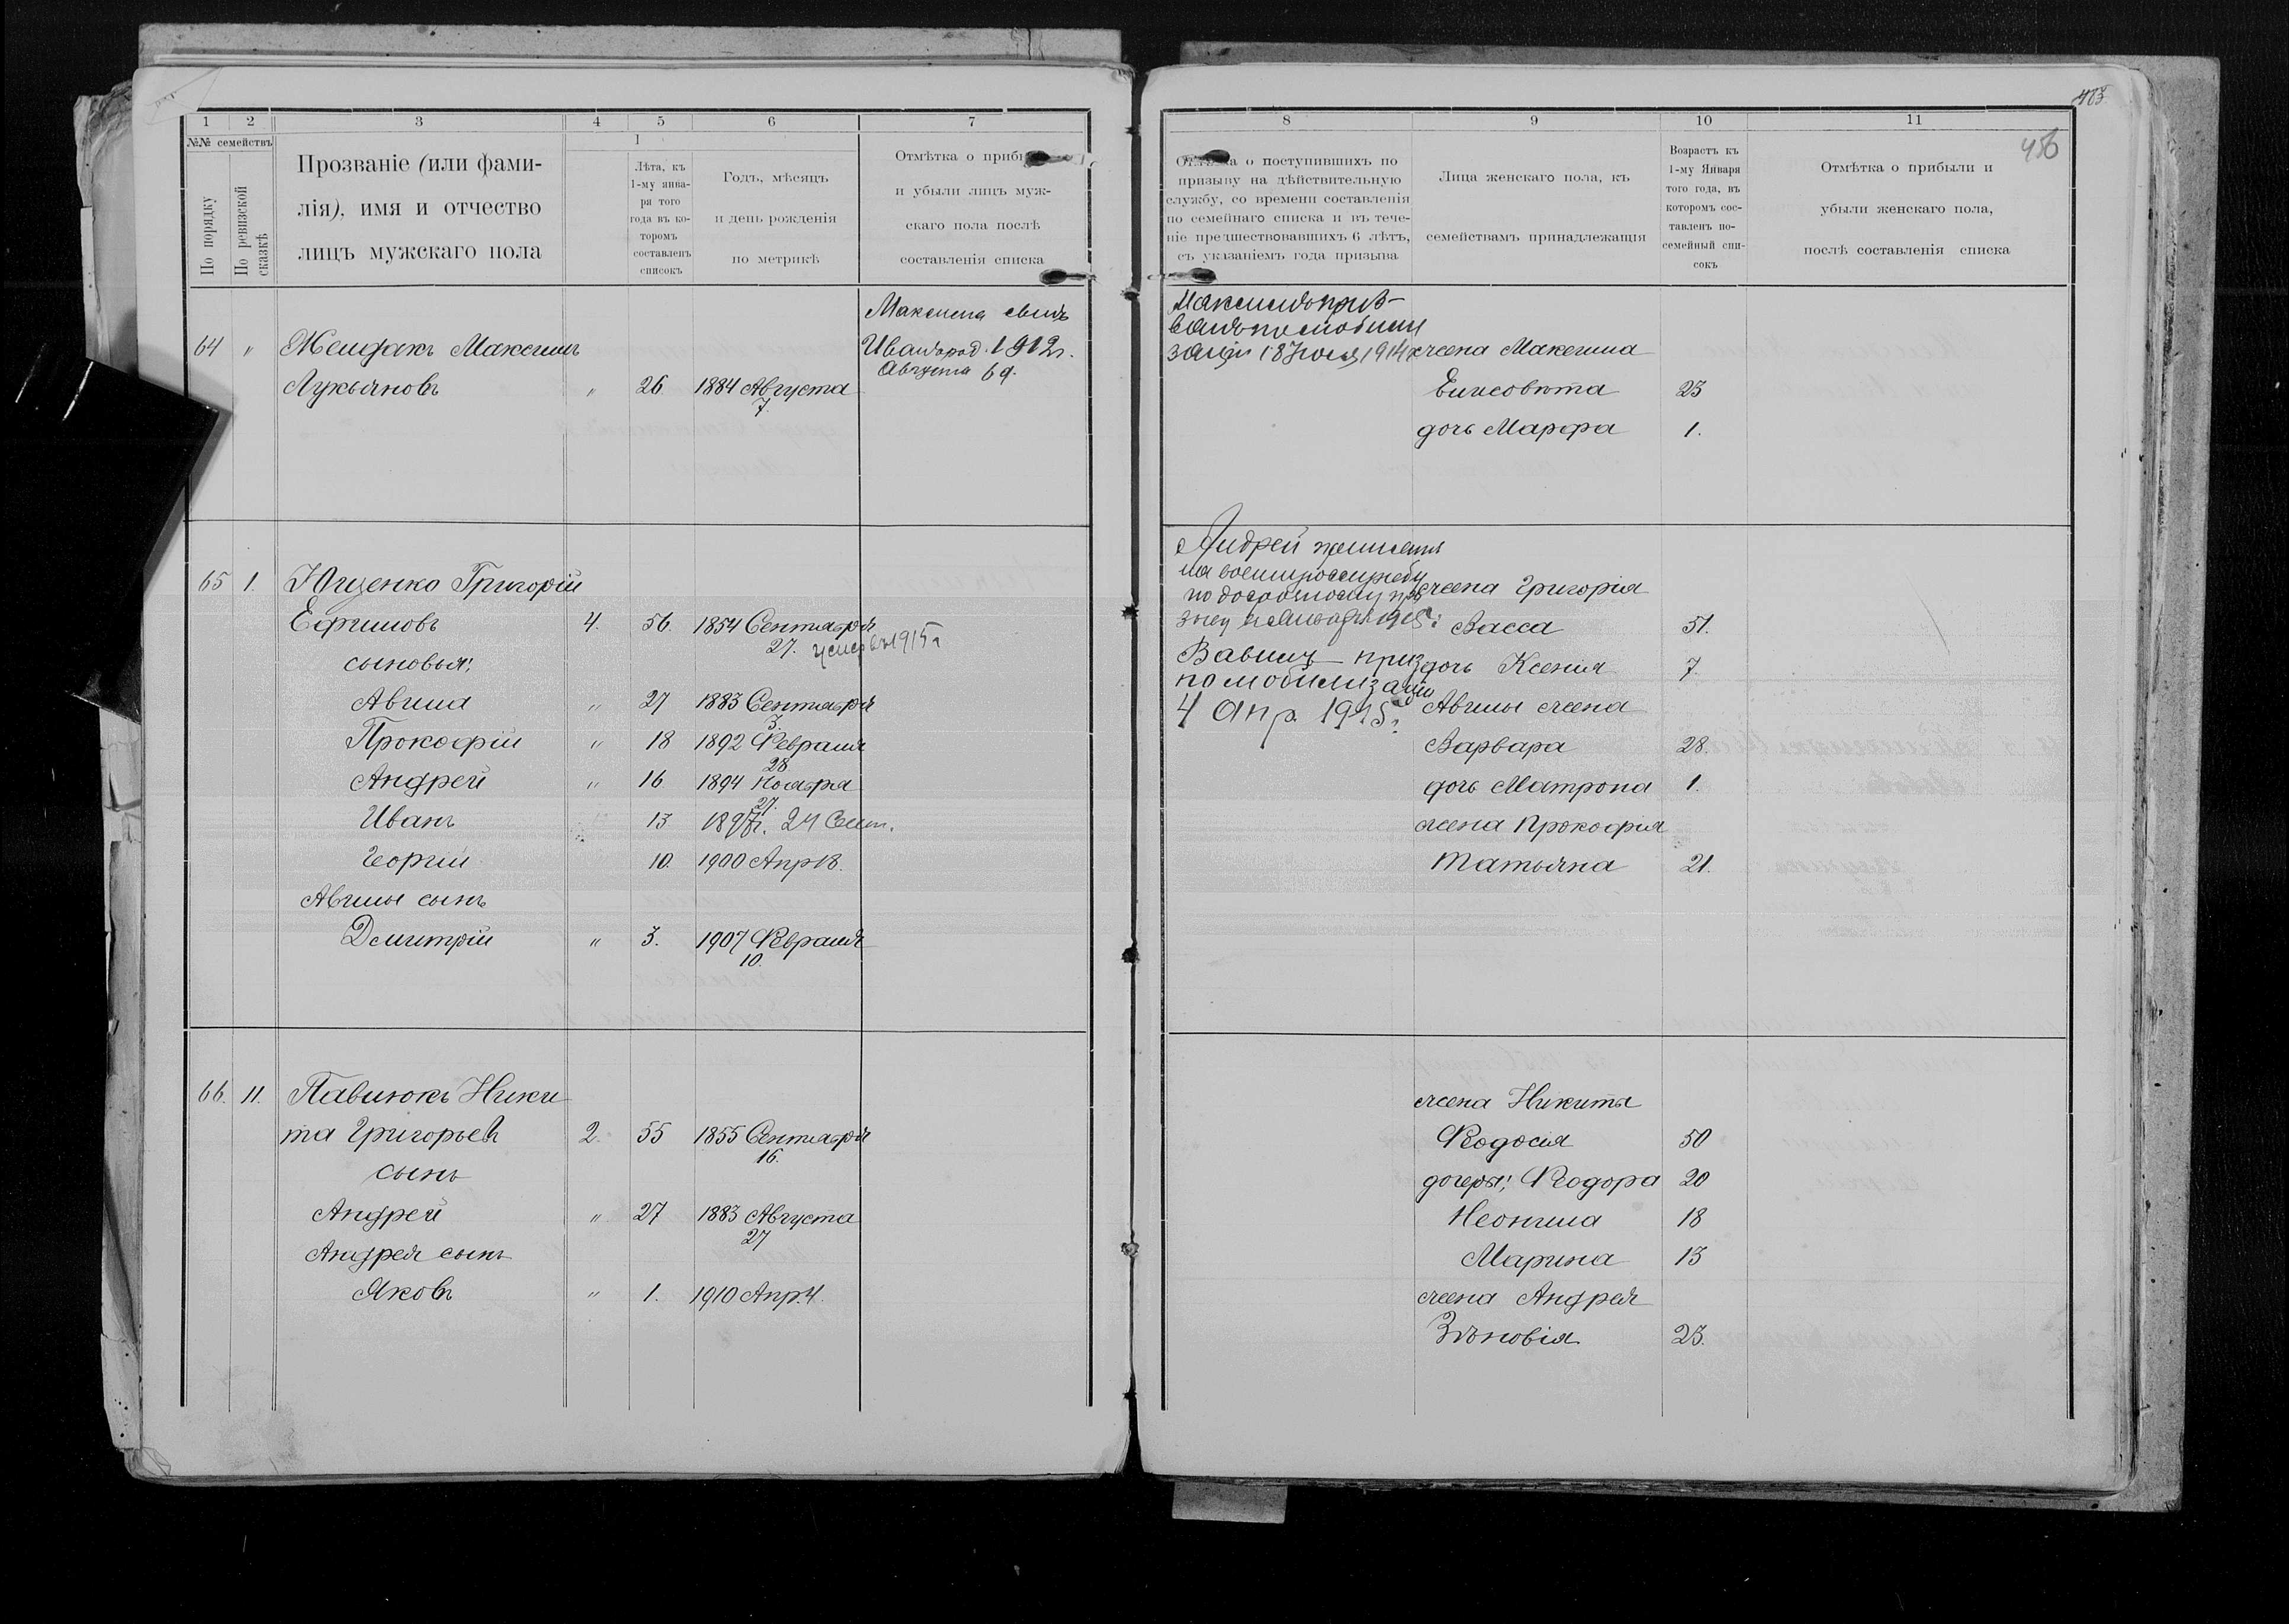 1 2 3 4 5 6 7
№№ семействъ
По порядку
По ревизской сказкѣ
Прозваніе (или фами-
лія), имя и отчество
лицъ мужскаго пола
1
Лѣта, къ
1-му янва-
ря того
года въ ко-
торомъ
составленъ
списокъ
Годъ, мѣсяцъ
и день рожденія
по метрикѣ
Отмѣтка о
и убыли лицъ муж-
скаго пола послѣ
составленія списка
Максима сынъ
64 " Максимъ Иванъ род. 1912г.
Августа 6 д.
Лукьяновъ " 26 1884 Августа
7.
65 1. Ющенко Григорій
Ефимовъ 4. 56. 1854 Сентября
27. 1915г
сыновья:
Авима " 27 1883 Сентября
3.
Прокофій " 18 1892 Февраля
28
Андрей " 16 1894 Ноября
27.
Иванъ 13 1897г. 24 Сент.
Георгій 10. 1900 Апр 18.
Авимы сынъ
Дмитрій " 3. 1907 Февраля
10.
66. 11. Павлюкъ Ники
та Григорьевъ 2. 55 1855 Сентября
16.
сынъ
Андрей " 27 1883 Августа
27
Андрея сынъ
Яковъ " 1. 1910 Апр. 4.
483
456
8 9 10 11
о поступившихъ по
призыву на дѣйствительную
службу, со времени составленія
по семейнаго списка и въ тече-
ніе предшествовавшихъ 6 лѣтъ,
съ указаніемъ года призыва
Лица женскаго пола, къ
семействамъ принадлежащія
Возрастъ къ
1-му Января
того года, въ
которомъ сос-
тавленъ по-
семейный спи-
сокъ
Отмѣтка о прибыли и
убыли женскаго пола,
послѣ составленія списка
Максимъ приз-
ванъ по мобили
заціи 18 Іюля 1914г жена Максима
Елисовета 23
дочь Марфа 1.
Андрей
на жена Григорія
по досрочному
1915г. Васса 51.
приз дочь Ксенія 7.
по мобилизаціи
4 Апр. 1915г. Авимы жена
Варвара 28.
дочь Матрона 1.
жена Прокофія
Татьяна 21.
жена Никиты
Феодосія 50
дочери: Феодора 20
Неонила 18
Марина 13
жена Андрея
Зѣновія 23.